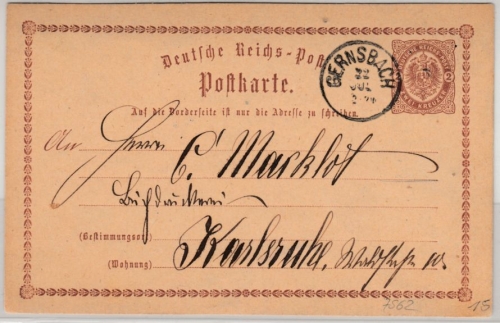 Deutsche Reichs-Post
Postkarte.
GERNSBACH
22
JUL
2
Auf die Vorderseite ist nur die Adresse zu schreiben.
An Herrn
C. Macklot
Buchdruckerei
(Bestimmungsort)
Karlsruhe, Waldstraße 10.
(Wohnung)
7562
15